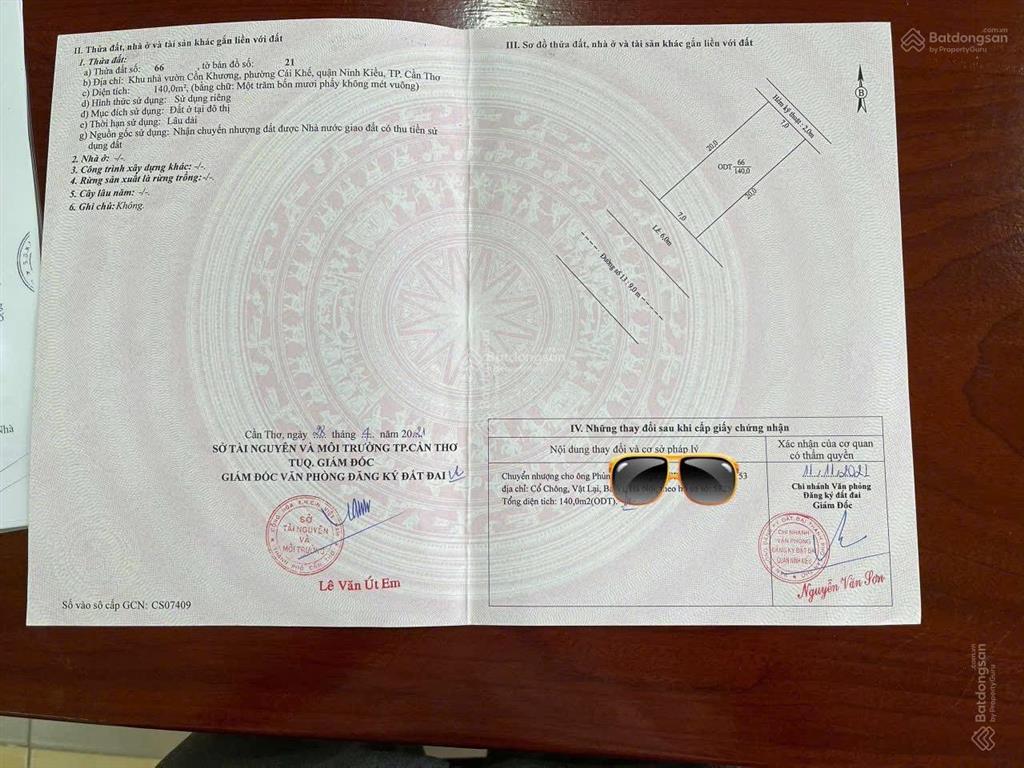 II. Thửa đất, nhà ở và tài sản khác gắn liền với đất
1. Thửa đất:
a) Thửa đất số: 66 , tờ bản đồ số: 21
b) Địa chỉ: Khu nhà vườn Cồn Khương, phường Cái Khế, quận Ninh Kiều, TP. Cần Thơ
c) Diện tích: 140,0m², (bằng chữ: Một trăm bốn mươi phẩy không mét vuông)
d) Hình thức sử dụng: Sử dụng riêng
đ) Mục đích sử dụng: Đất ở tại đô thị
e) Thời hạn sử dụng: Lâu dài
g) Nguồn gốc sử dụng: Nhận chuyển nhượng đất được Nhà nước giao đất có thu tiền sử
dụng đất
2. Nhà ở: -/-.
3. Công trình xây dựng khác: -/-.
4. Rừng sản xuất là rừng trồng: -/-.
5. Cây lâu năm: -/-.
6. Ghi chú: Không.
Cần Thơ, ngày 28 tháng 4 năm 2021
SỞ TÀI NGUYÊN VÀ MÔI TRƯỜNG TP.CẦN THƠ
TUQ. GIÁM ĐỐC
GIÁM ĐỐC VĂN PHÒNG ĐĂNG KÝ ĐẤT ĐAI
SỞ
TÀI NGUYÊN
VÀ
MÔI TRƯỜNG
Lê Văn Út Em
Số vào sổ cấp GCN: CS07409
III. Sơ đồ thửa đất, nhà ở và tài sản khác gắn liền với đất
B
Hẻm kỹ thuật : 2,0m
7,0
20,0
ODT 66
140,0
20,0
7,0
Lề: 6,0m
Đường số 13 : 9,0 m
IV. Những thay đổi sau khi cấp giấy chứng nhận
Nội dung thay đổi và cơ sở pháp lý
Xác nhận của cơ quan
có thẩm quyền
Chuyển nhượng cho ông 53
địa chỉ: Cổ Chông, Vật Lại,
Tổng diện tích: 140,0m2(ODT).
11.11.2021
Chi nhánh Văn phòng
Đăng ký đất đai
Giám Đốc
CHI NHÁNH
VĂN PHÒNG
ĐĂNG KÝ ĐẤT ĐAI
QUẬN NINH KIỀU
Nguyễn Văn Sơn
Batdongsan .com.vn
by PropertyGuru
Batdongsan
Batdongsan .com.vn
by PropertyGuru